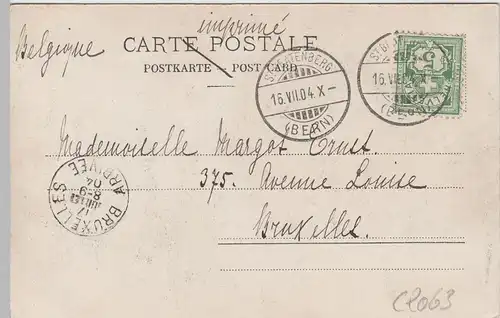 imprimé
Belgique
CARTE POSTALE
POSTKARTE – POST CARD
ST. BEATENBERG
16.VII.04.X–
(BERN)
16.VII.04.X–
(BERN)
Mademoiselle Margot Ernst
375. Avenue Louise
Bruxelles.
BRUXELLES
ARRIVÉE
8-9
17
04
C2063